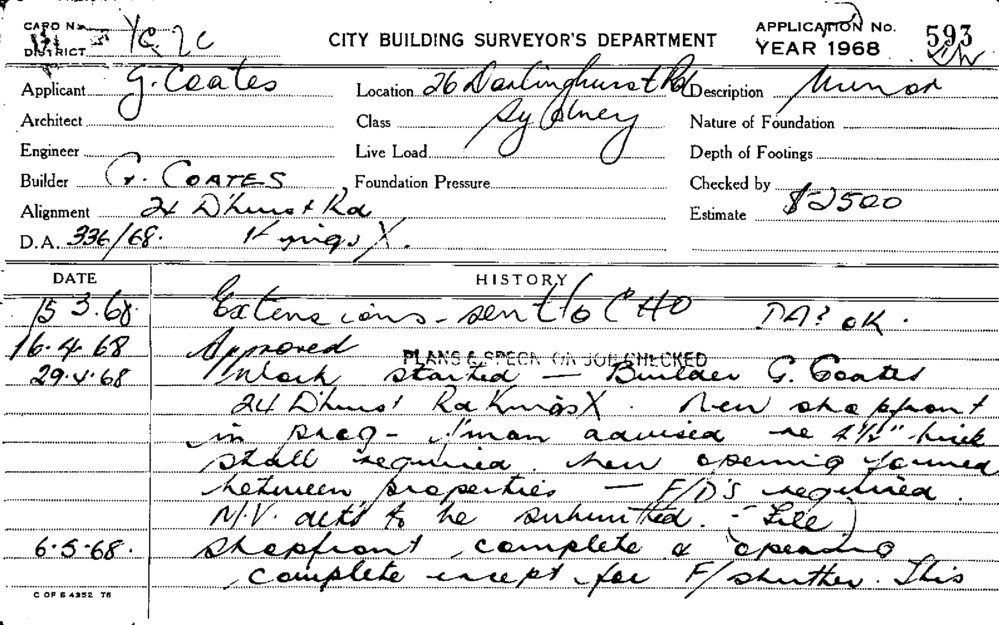 CARD No.
DISTRICT
CITY BUILDING SURVEYOR'S DEPARTMENT
APPLICATION No. 593
YEAR 1968
Applicant G. Coates
Location 26 Darlinghurst Rd
Description Minor
Architect
Class Sydney
Nature of Foundation
Engineer
Live Load
Depth of Footings
Builder G. COATES
Foundation Pressure
Checked by
Alignment 24 D'hurst Rd
Estimate $2500
D.A. 336/68. Kings X.
DATE
HISTORY
15 3.68. Extensions - sent to CHO DA? OK.
16.4.68 Approved
PLANS & SPECN. ON JOB CHECKED
29.4.68 Work started — Builder G. Coates
24 D'hurst Rd Kings X. New shopfront
in prog - f'man advised re 4½" brick
stall required. New opening formed
between properties — F/D's required.
M.V. det's to be submitted. - (File)
6.5.68. Shopfront complete & opening
complete except for F/shutter. This
C OF S 4352 76